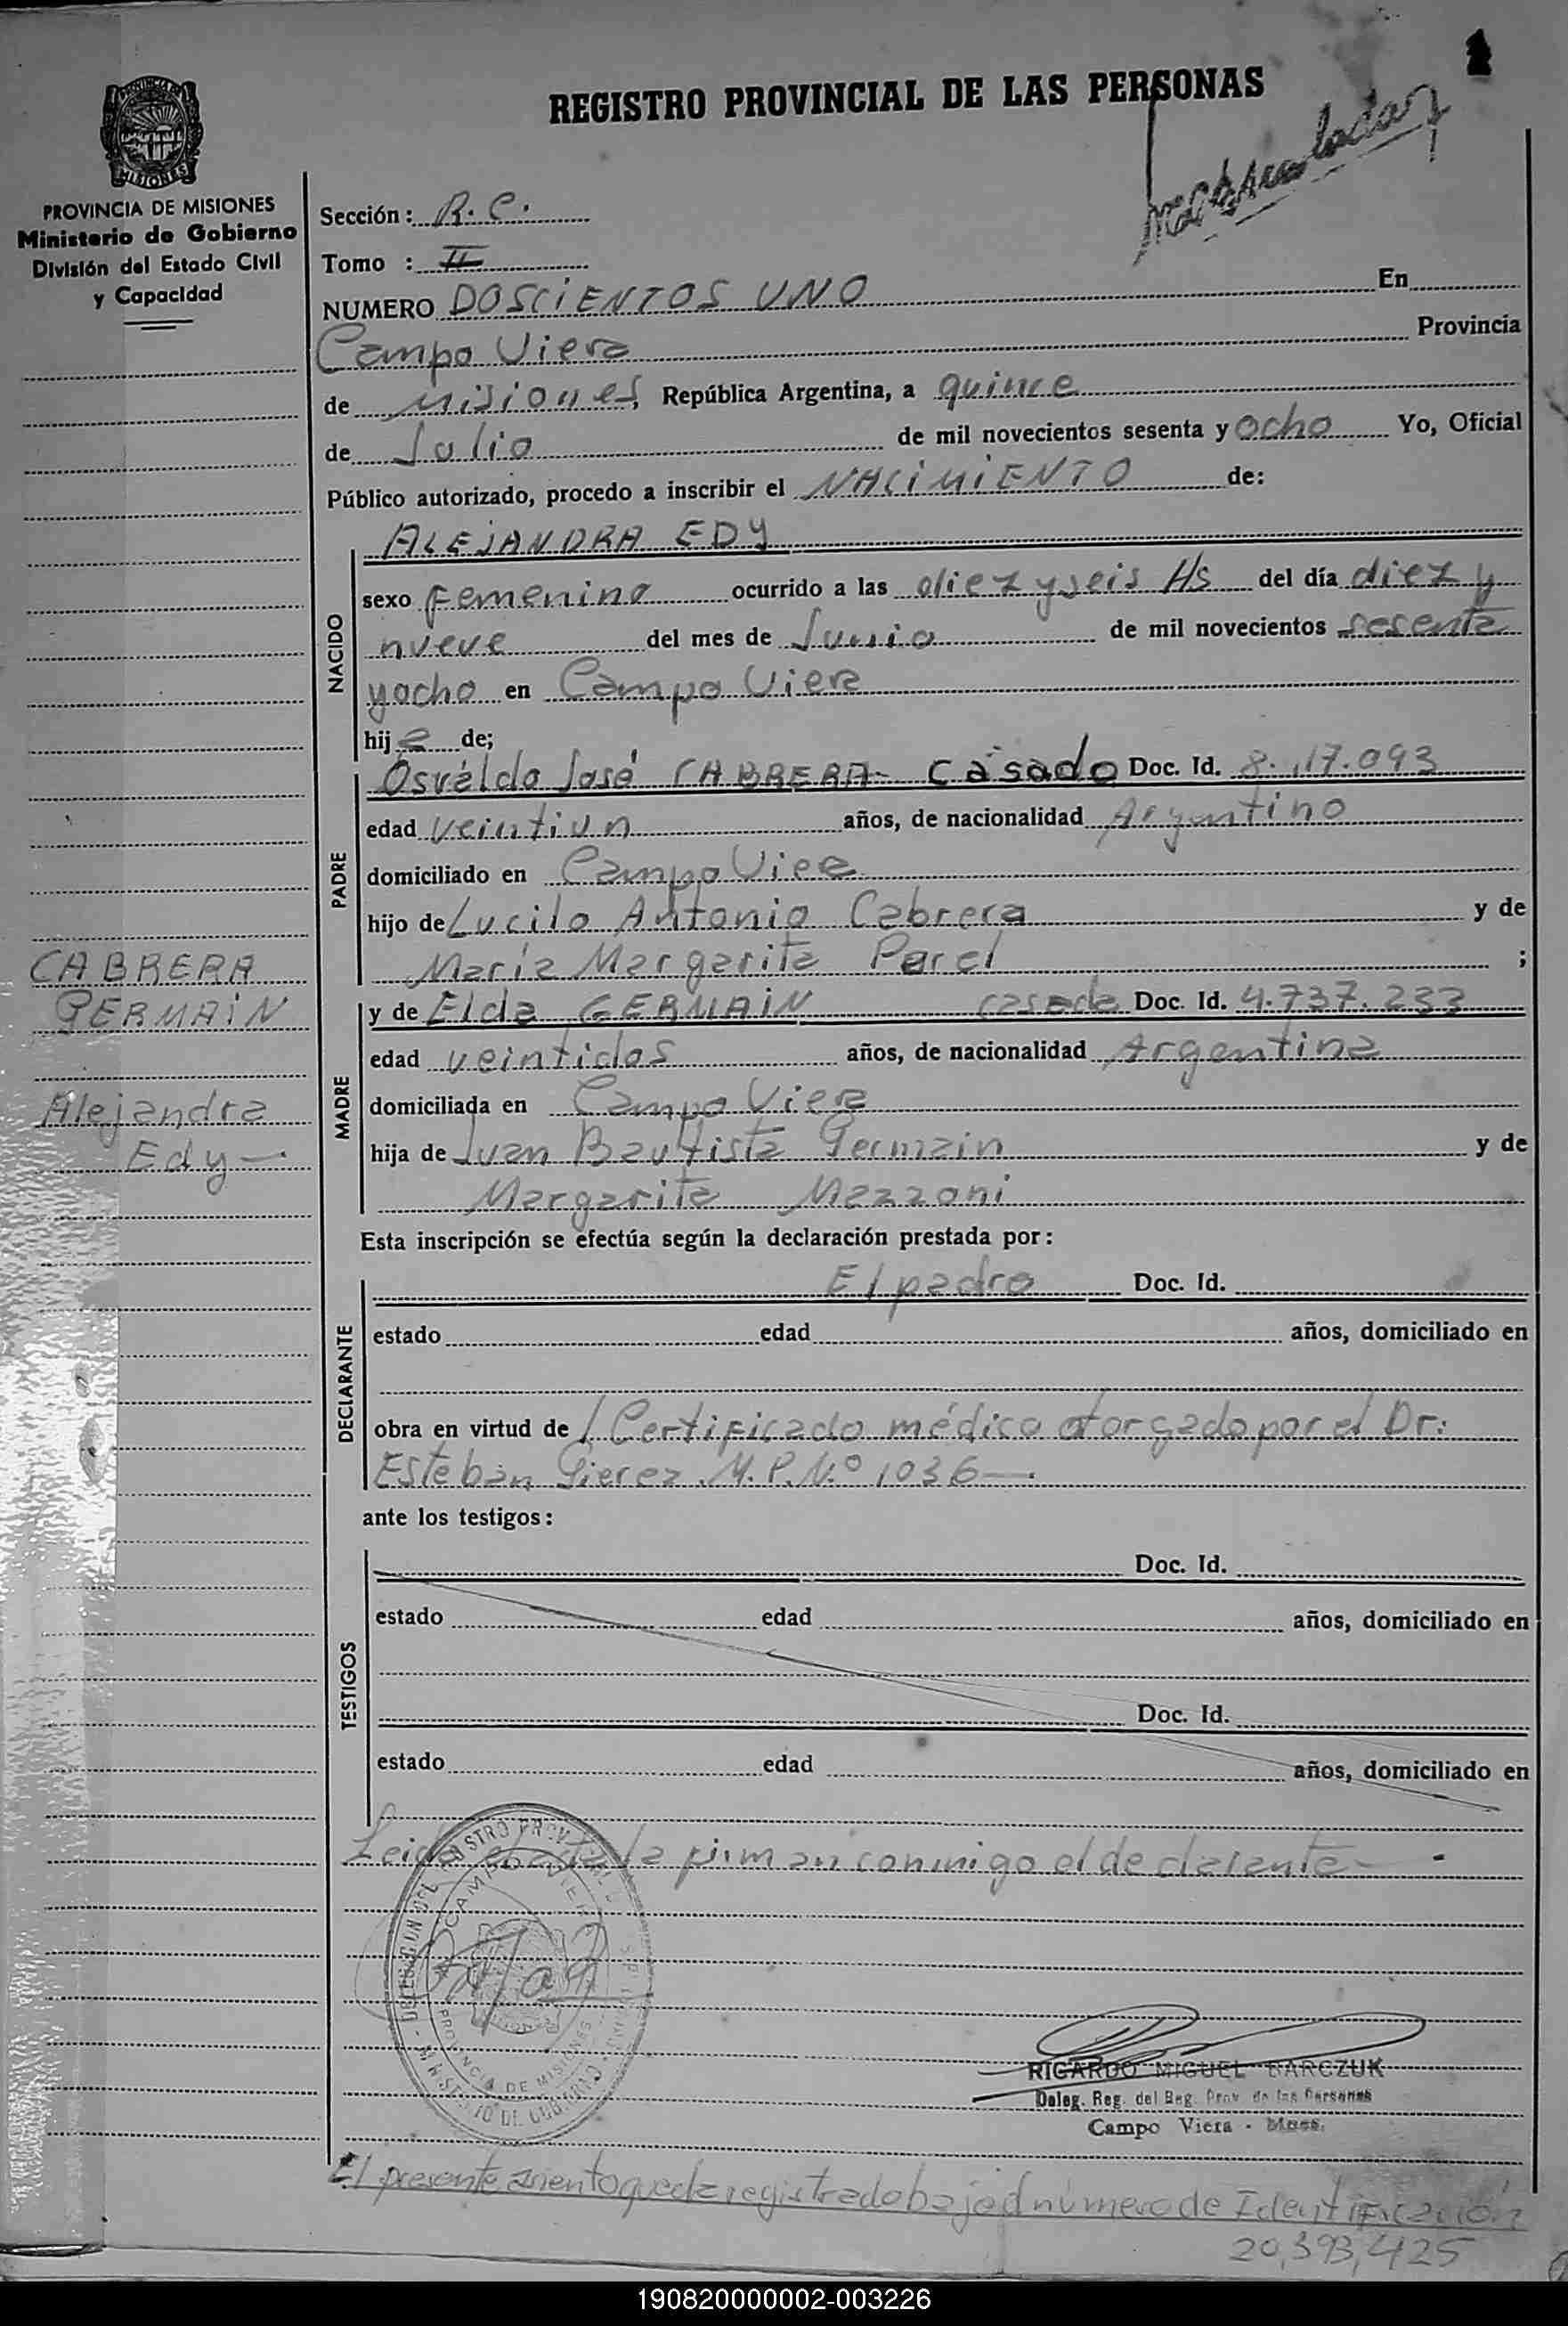 REGISTRO PROVINCIAL DE LAS PERSONAS
MISIONES
PROVINCIA DE MISIONES
Ministerio de Gobierno
División del Estado Civil
y Capacidad
Sección: R. C.
Tomo : II
NUMERO DOSCIENTOS UNO En
Campo Viera Provincia
de Misiones, República Argentina, a quince
de Julio de mil novecientos sesenta y ocho Yo, Oficial
Público autorizado, procedo a inscribir el NACIMIENTO de:
ALEJANDRA EDY
NACIDO
sexo femenino ocurrido a las diez y seis Hs del día diez y
nueve del mes de Junio de mil novecientos sesenta
y ocho en Campo Viera
hija de;
PADRE
Osvaldo José CABRERA- casado Doc. Id.
edad veintiun años, de nacionalidad Argentino
domiciliado en Campo Viera
hijo de Lucilo Antonio Cabrera y de
María Margarita ;
CABRERA
GERMAIN
Alejandra
Edy —
MADRE
y de Elda GERMAIN casada Doc. Id. 4.737.233
edad veintidos años, de nacionalidad Argentina
domiciliada en Campo Viera
hija de Juan Bautista Germain y de
Margarita Mazzoni
Esta inscripción se efectúa según la declaración prestada por:
DECLARANTE
El padre Doc. Id.
estado edad años, domiciliado en
obra en virtud de / Certificado médico otorgado por el Dr:
Esteban M.P.N.º 1036 —.
ante los testigos:
TESTIGOS
Doc. Id.
estado edad años, domiciliado en
Doc. Id.
estado edad años, domiciliado en
Leida el acta la firman conmigo el declarante —
RICARDO MIGUEL BARCZUK
Deleg. Reg. del Reg. Prov. de las Personas
Campo Viera - Mnes.
El presente asiento queda registrado bajo el número de Identificación
20,393,425
190820000002-003226